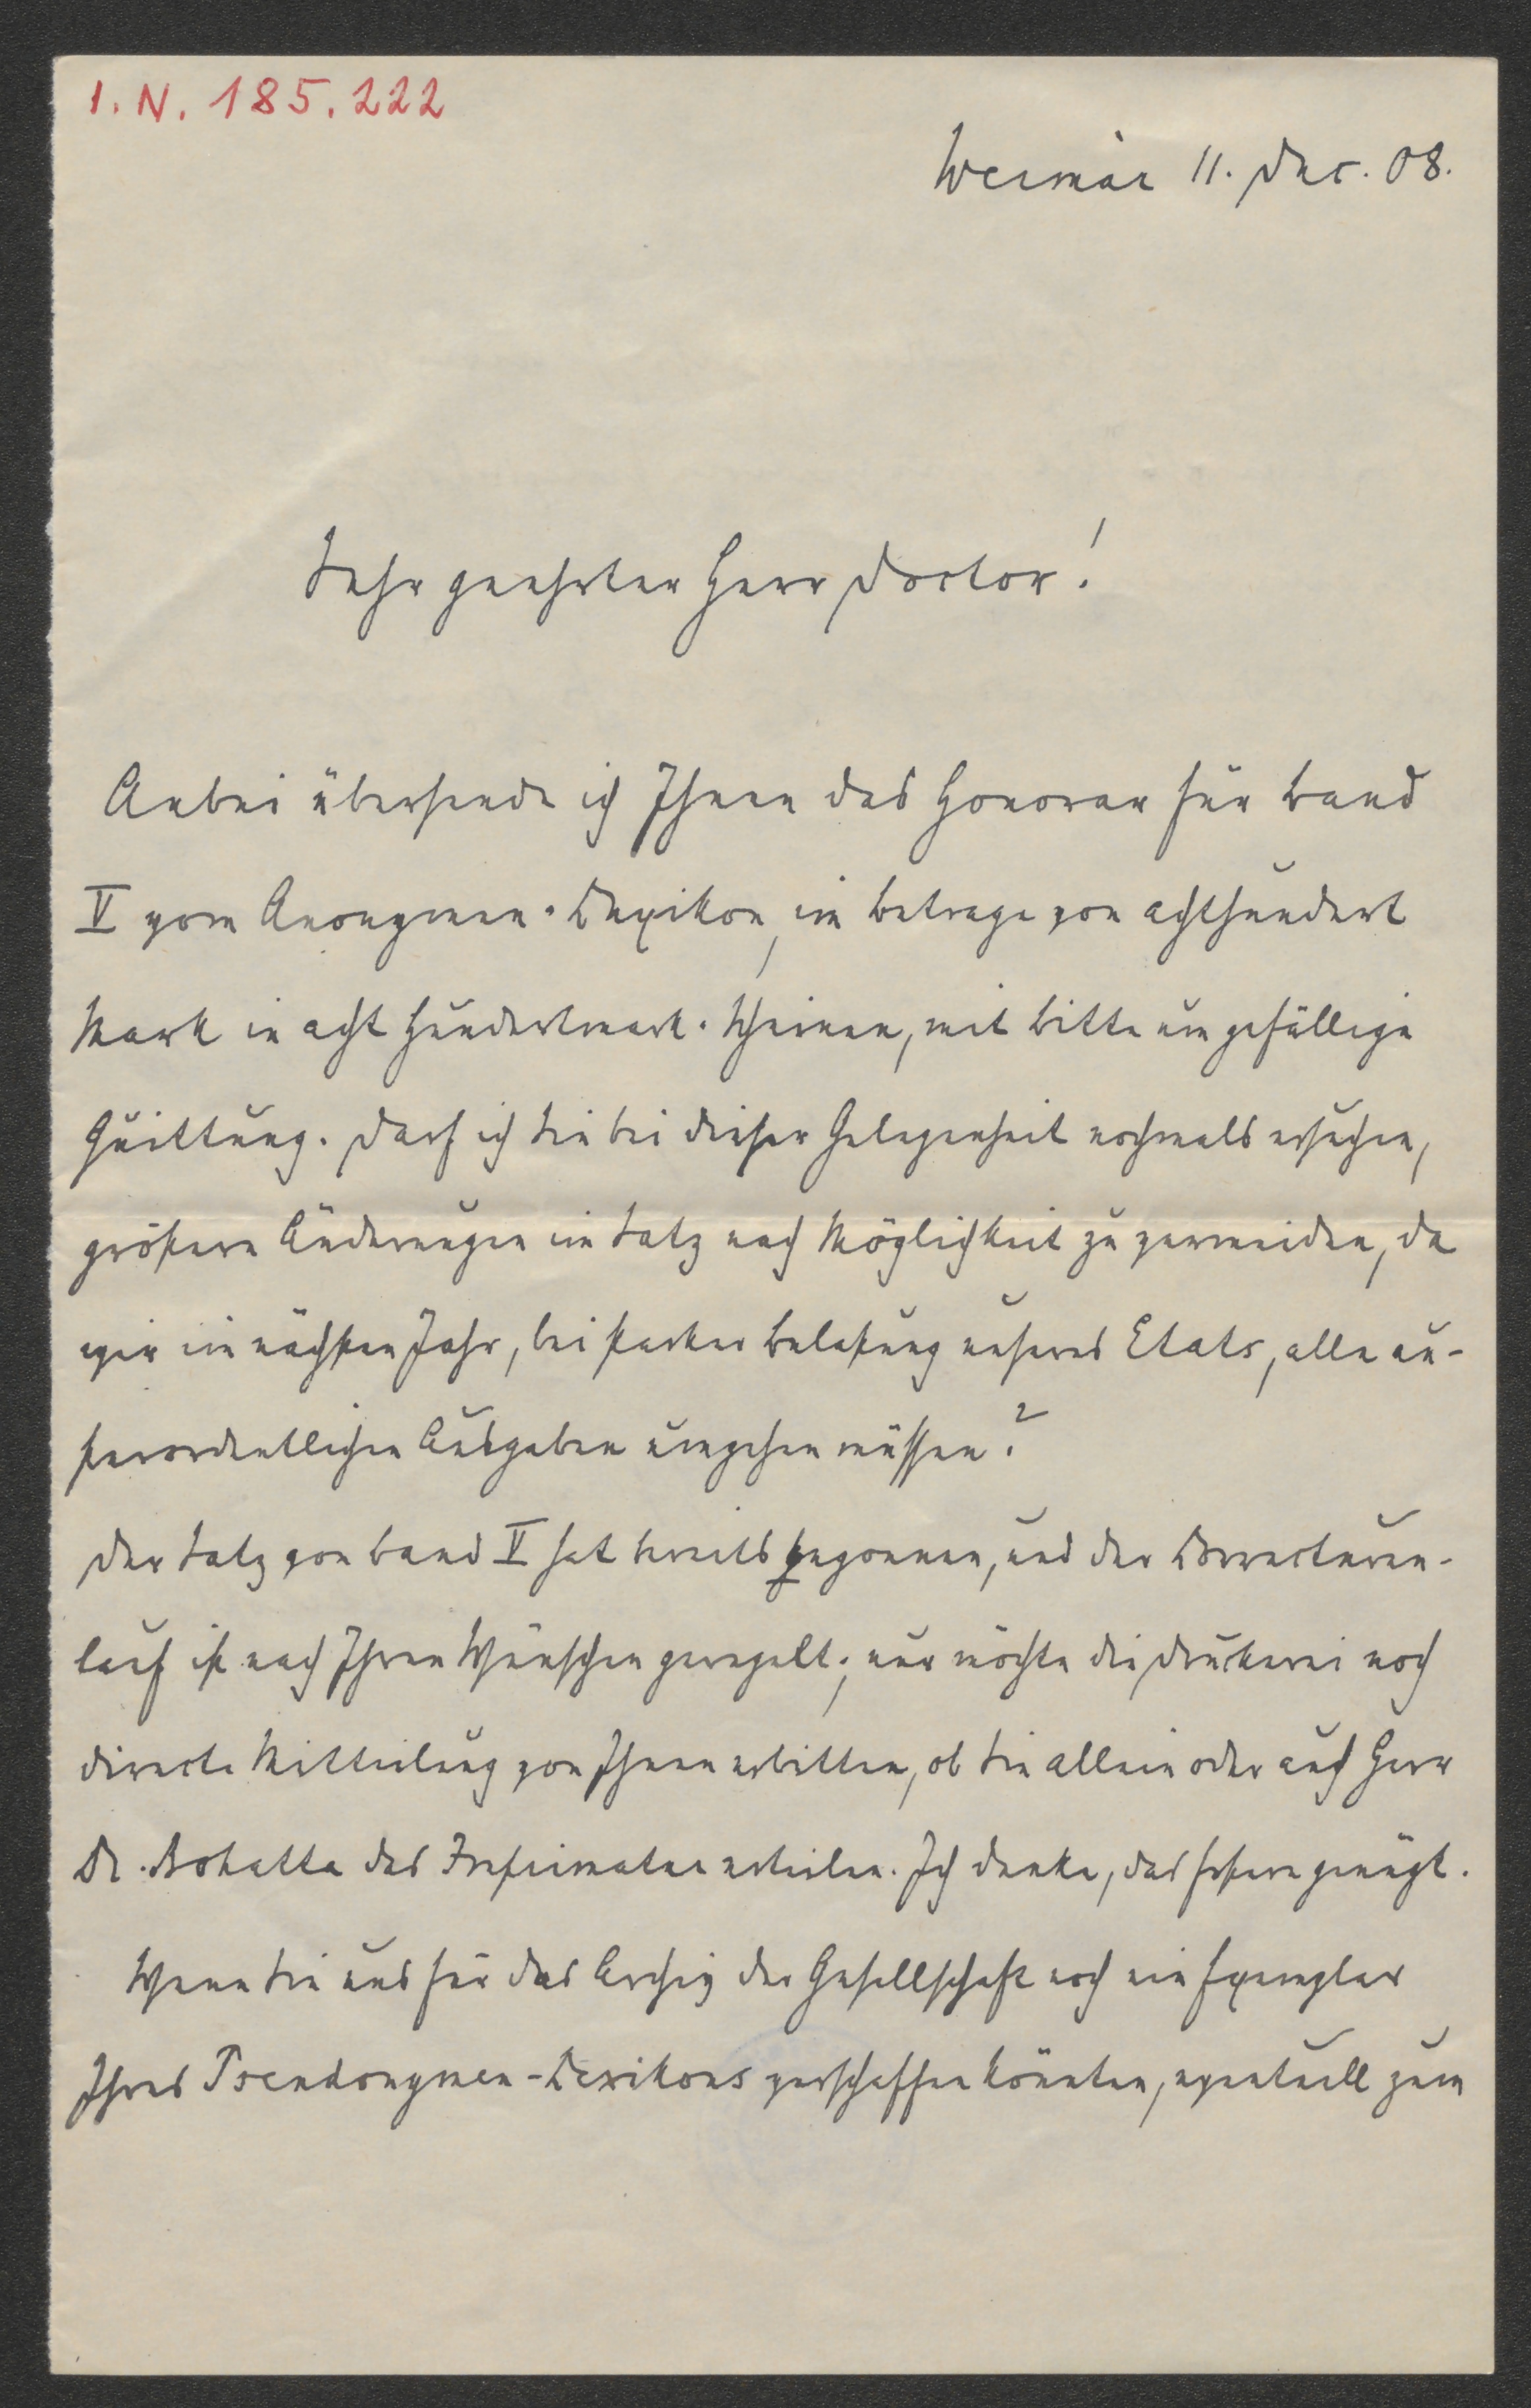 I. N. 185.222
Weimar 11. Dec. 08.
Sehr geehrter Herr Doctor!
Anbei übersende ich Ihnen das Honorar für Band
V vom Anonymen-Lexikon, im Betrage von achthundert
Mark in acht Hundertmark-Scheinen, mit Bitte um gefällige
Quittung. Darf ich Sie bei dieser Gelegenheit nochmals ersuchen,
größere Änderungen im Satz nach Möglichkeit zu vermeiden, da
wir im nächsten Jahr, bei starker Belastung unseres Etats, alle au-
ßerordentlichen Ausgaben umgehen müssen?
Der Satz von Band V hat bereits begonnen, und der Correcturen-
lauf ist nach Ihren Wünschen geregelt; nur möchte die Druckerei noch
directe Mitteilung von Ihnen erbitten, ob Sie allein oder auch Herr
Dr. Bohatta das Imprimatur erteilen. Ich denke, das erstere genügt.
Wenn Sie uns für das Archiv der Gesellschaft noch ein Exemplar
Ihres Pseudonymen-Lexikons verschaffen könnten, eventuell zum